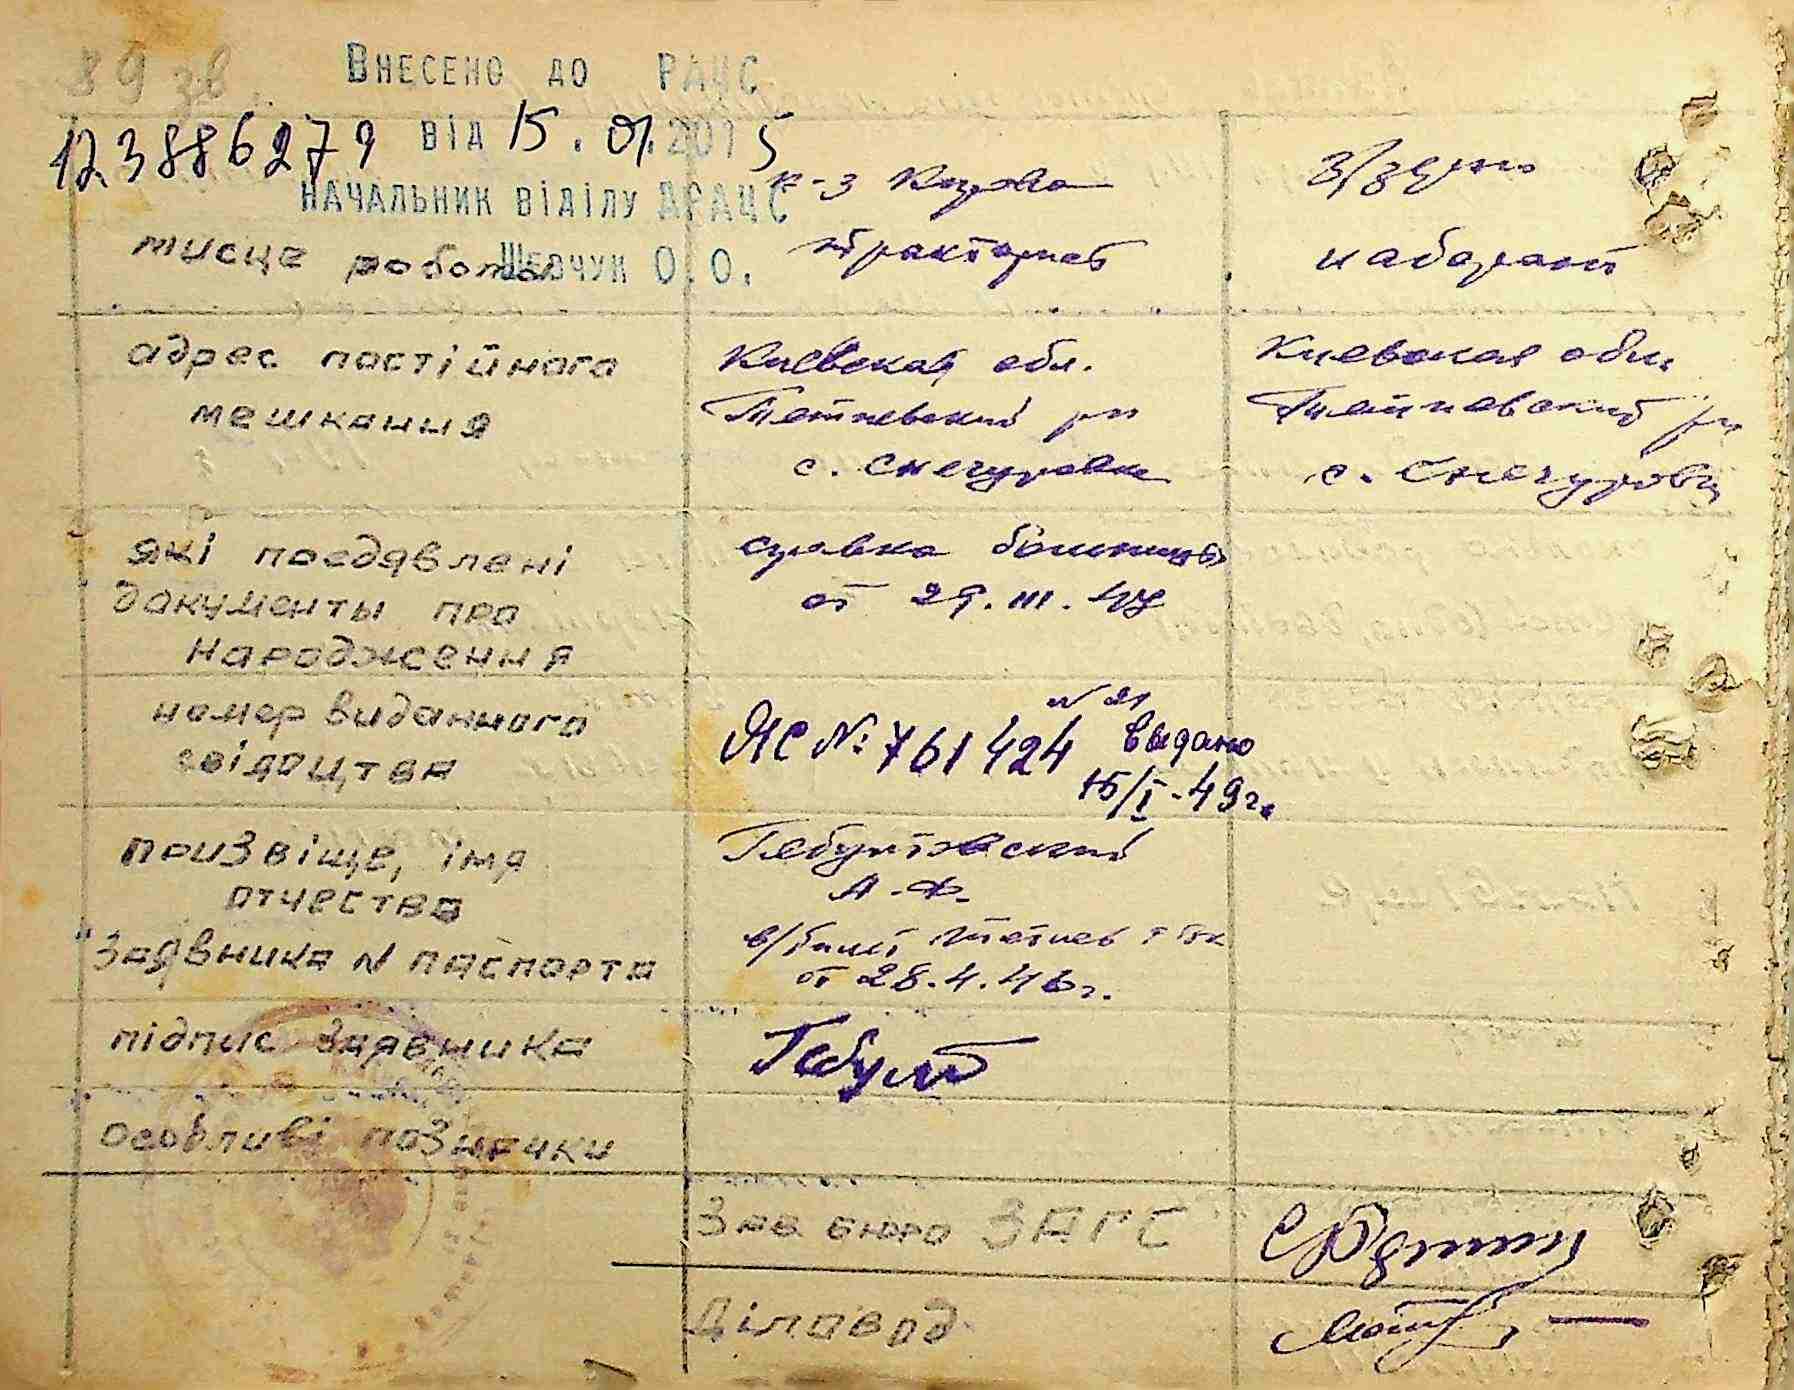 89 зв.
Внесено до РАЦС
123886279 від 15.01.2015
Начальник відділу ДРАЦС
Шевчук О.О.
мисце роботы
к-з Кирова
тракторист
З/зерно
лаборант
адрес постійного
мешкання
Киевская обл.
Тетиевский рн
с. Снегуровка
Киевская обл.
Тетиевский рн
с. Снегуровка
які поедявлені
дакументы про
Народження
справка больницы
от 29.III.
номер виданного
свідоцтва
ЯС №: 761424
№ 21
выдано
15/I-49г.
призвіще, імя
отчества
Заявника N паспорта
А.Ф.
в/билет Тетиев
от 28.4.46г.
підпис Заявника
особливі позначки
Зав бюро ЗАГС
Діловод